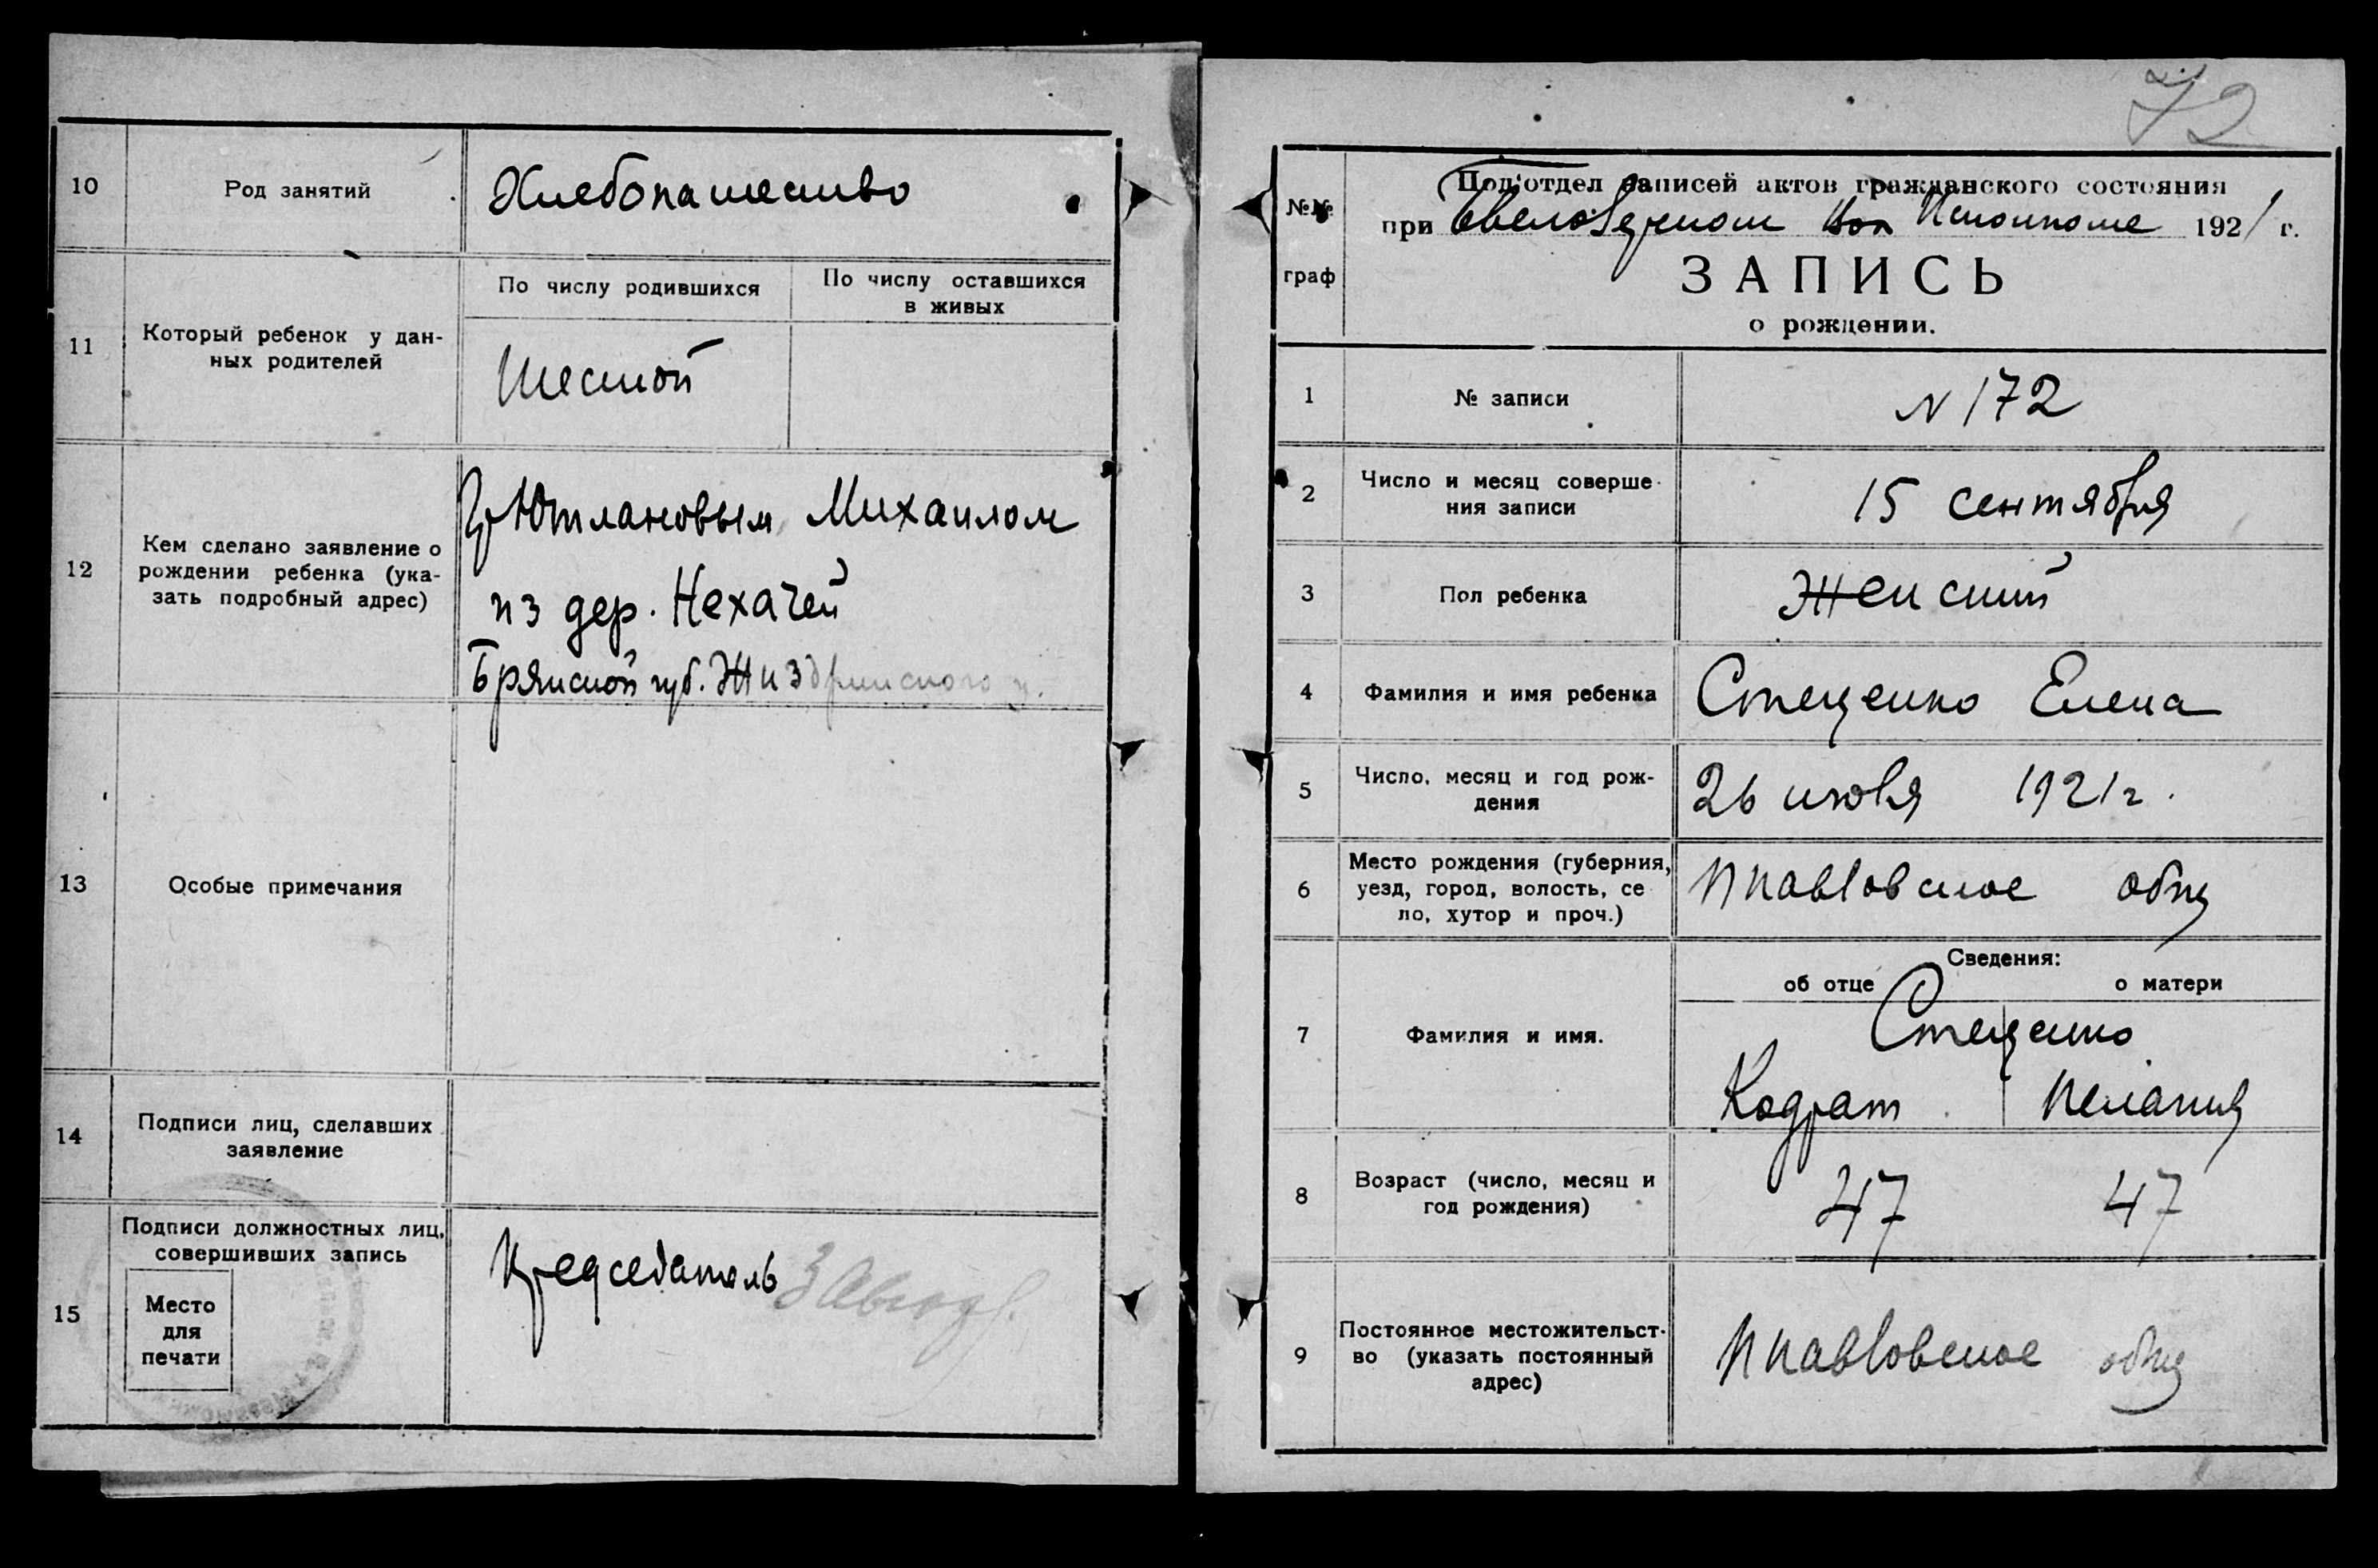 10
Род занятий
Хлебопашество
11
Который ребенок у дан-
ных родителей
По числу родившихся
По числу оставшихся
в живых
Шестой
12
Кем сделано заявление о
рождении ребенка (ука-
зать подробный адрес)
Михаилом
из дер. Нехачей
Брянской губ. Жиздринского у.
13
Особые примечания
14
Подписи лиц, сделавших
заявление
15
Подписи должностных лиц,
совершивших запись
Место
для
печати
Председатель
72
№№
граф
Под'отдел записей актов гражданского состояния
при Исполкоме 1921 г.
ЗАПИСЬ
о рождении.
1
№ записи
N 172
2
Число и месяц соверше-
ния записи
15 сентября
3
Пол ребенка
Женский
4
Фамилия и имя ребенка
Стеценко Елена
5
Число, месяц и год рож-
дения
26 июля 1921 г.
6
Место рождения (губерния,
уезд, город, волость, се
ло, хутор и проч.)
общ
Сведения:
об отце
о матери
7
Фамилия и имя.
Стеценко
Кодрат
Пелагия
8
Возраст (число, месяц и
год рождения)
47
47
9
Постоянное местожительст-
во (указать постоянный
адрес)
общ